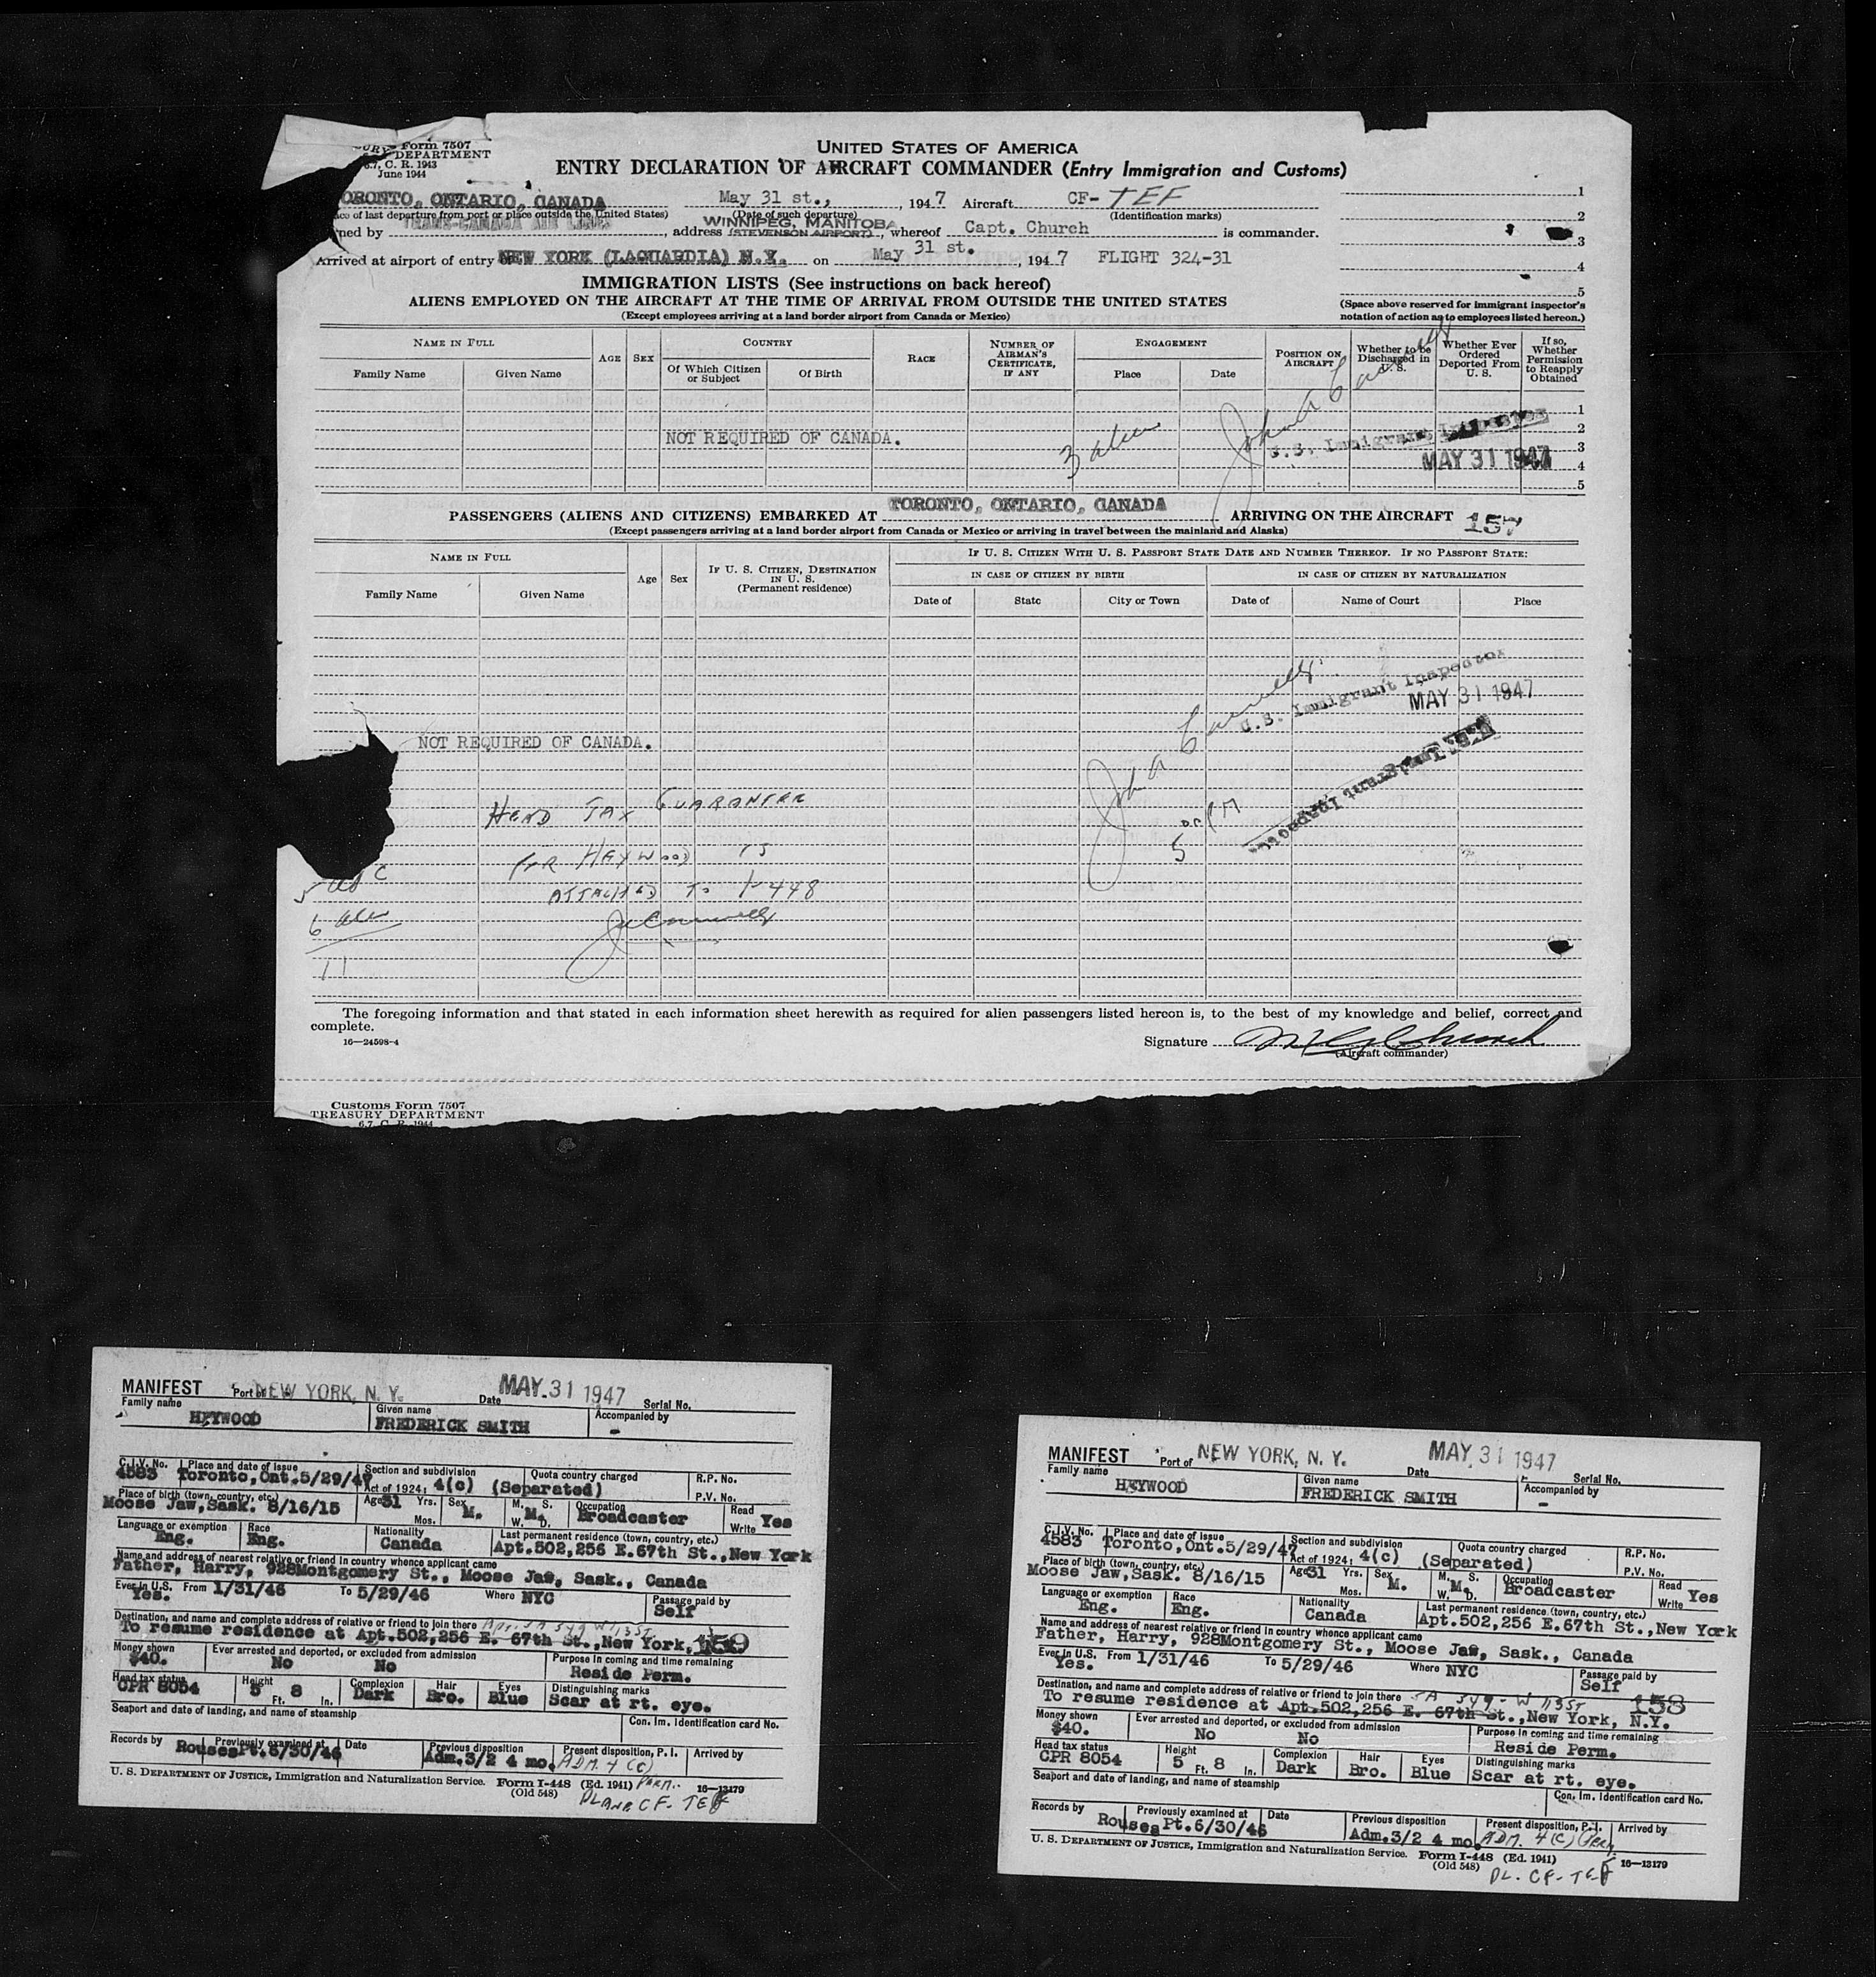 Form 7507
DEPARTMENT
6.7, C. R. 1943
June 1944
UNITED STATES OF AMERICA
ENTRY DECLARATION OF AIRCRAFT COMMANDER (Entry Immigration and Customs)
ORONTO, ONTARIO, CANADA May 31 st., , 1947 Aircraft CF-TEF
ace of last departure from port or place outside the United States) (Date of such departure) (Identification marks)
ned by TRANS-CANADA AIR LINES , address WINNIPEG, MANITOBA (STEVENSON AIRPORT) , whereof Capt. Church is commander.
Arrived at airport of entry NEW YORK (LAGUARDIA) N.Y. on May 31 st. , 1947 FLIGHT 324-31
1
2
3
4
5
IMMIGRATION LISTS (See instructions on back hereof)
ALIENS EMPLOYED ON THE AIRCRAFT AT THE TIME OF ARRIVAL FROM OUTSIDE THE UNITED STATES
(Except employees arriving at a land border airport from Canada or Mexico)
(Space above reserved for immigrant inspector's
notation of action as to employees listed hereon.)
NAME IN FULL
Family Name Given Name
AGE SEX
COUNTRY
Of Which Citizen or Subject Of Birth
RACE
NUMBER OF AIRMAN'S CERTIFICATE, IF ANY
ENGAGEMENT
Place Date
POSITION ON AIRCRAFT
Whether to be Discharged in U. S.
Whether Ever Ordered Deported From U. S.
If so, Whether Permission to Reapply Obtained
NOT REQUIRED OF CANADA.
3 alien
U.S. Immigrant Inspector
MAY 31 1947
1
2
3
4
5
PASSENGERS (ALIENS AND CITIZENS) EMBARKED AT TORONTO, ONTARIO, CANADA ARRIVING ON THE AIRCRAFT 157
(Except passengers arriving at a land border airport from Canada or Mexico or arriving in travel between the mainland and Alaska)
NAME IN FULL
Family Name Given Name
Age Sex
IF U. S. CITIZEN, DESTINATION IN U. S.
(Permanent residence)
IF U. S. CITIZEN WITH U. S. PASSPORT STATE DATE AND NUMBER THEREOF. IF NO PASSPORT STATE:
IN CASE OF CITIZEN BY BIRTH IN CASE OF CITIZEN BY NATURALIZATION
Date of State City or Town Date of Name of Court Place
U.S. Immigrant Inspector
MAY 31 1947
NOT REQUIRED OF CANADA.
U.S. Immigrant Inspector
HEAD TAX GUARANTEE
FOR HAYWOOD IS
ATTACHED TO I-448
5 PM
5 USC
6 alien
11
The foregoing information and that stated in each information sheet herewith as required for alien passengers listed hereon is, to the best of my knowledge and belief, correct and
complete.
16—24598-4
Signature
(Aircraft commander)
Customs Form 7507
TREASURY DEPARTMENT
6.7, C. R. 1944
MANIFEST Port of NEW YORK, N. Y. Date MAY 31 1947 Serial No.
Family name HEYWOOD Given name FREDERICK SMITH Accompanied by -
C.I.V. No. 4583 Place and date of issue Toronto, Ont. 5/29/47 Section and subdivision Act of 1924: 4(c) (Separated) Quota country charged R.P. No.
P.V. No.
Place of birth (town, country, etc.) Moose Jaw, Sask. 8/16/15 Age 31 Yrs. Mos. Sex M. M. S. W. D. M. Occupation Broadcaster Read Write Yes
Language or exemption Eng. Race Eng. Nationality Canada Last permanent residence (town, country, etc.) Apt.502,256 E.67th St., New York
Name and address of nearest relative or friend in country whence applicant came
Father, Harry, 928Montgomery St., Moose Jaw, Sask., Canada
Ever in U.S. Yes. From 1/31/46 To 5/29/46 Where NYC Passage paid by Self
Destination, and name and complete address of relative or friend to join there Apt. 5A 349 W 113ST
To resume residence at Apt.502,256 E. 67th St.,New York, 159
Money shown $40. Ever arrested and deported, or excluded from admission No No Purpose in coming and time remaining Reside Perm.
Head tax status CPR 8054 Height 5 Ft. 8 In. Complexion Dark Hair Bro. Eyes Blue Distinguishing marks Scar at rt. eye.
Seaport and date of landing, and name of steamship Con. Im. Identification card No.
Records by Previously examined at Rouses Pt. 6/30/46 Date Previous disposition Adm.3/2 4 mo. Present disposition, P. I. ADM. 4 (c) Arrived by
U. S. DEPARTMENT OF JUSTICE, Immigration and Naturalization Service. Form I-448 (Ed. 1941) PERM. 16—13179
(Old 548) PLANE CF-TEF
MANIFEST Port of NEW YORK, N. Y. Date MAY 31 1947 Serial No.
Family name HEYWOOD Given name FREDERICK SMITH Accompanied by -
C.I.V. No. 4583 Place and date of issue Toronto, Ont. 5/29/47 Section and subdivision Act of 1924: 4(c) (Separated) Quota country charged R.P. No.
P.V. No.
Place of birth (town, country, etc.) Moose Jaw, Sask. 8/16/15 Age 31 Yrs. Mos. Sex M. M. S. W. D. M. Occupation Broadcaster Read Write Yes
Language or exemption Eng. Race Eng. Nationality Canada Last permanent residence (town, country, etc.) Apt.502,256 E.67th St., New York
Name and address of nearest relative or friend in country whence applicant came
Father, Harry, 928Montgomery St., Moose Jaw, Sask., Canada
Ever in U.S. Yes. From 1/31/46 To 5/29/46 Where NYC Passage paid by Self
Destination, and name and complete address of relative or friend to join there 5A 349-W 113ST 158
To resume residence at Apt.502,256 E. 67th St.,New York, N.Y.
Money shown $40. Ever arrested and deported, or excluded from admission No No Purpose in coming and time remaining Reside Perm.
Head tax status CPR 8054 Height 5 Ft. 8 In. Complexion Dark Hair Bro. Eyes Blue Distinguishing marks Scar at rt. eye.
Seaport and date of landing, and name of steamship Con. Im. Identification card No.
Records by Previously examined at Rouses Pt. 6/30/46 Date Previous disposition Adm.3/2 4 mo. Present disposition, P. I. ADM. 4 (c) PERM. Arrived by
U. S. DEPARTMENT OF JUSTICE, Immigration and Naturalization Service. Form I-448 (Ed. 1941) 16—13179
(Old 548) PL. CF-TEF